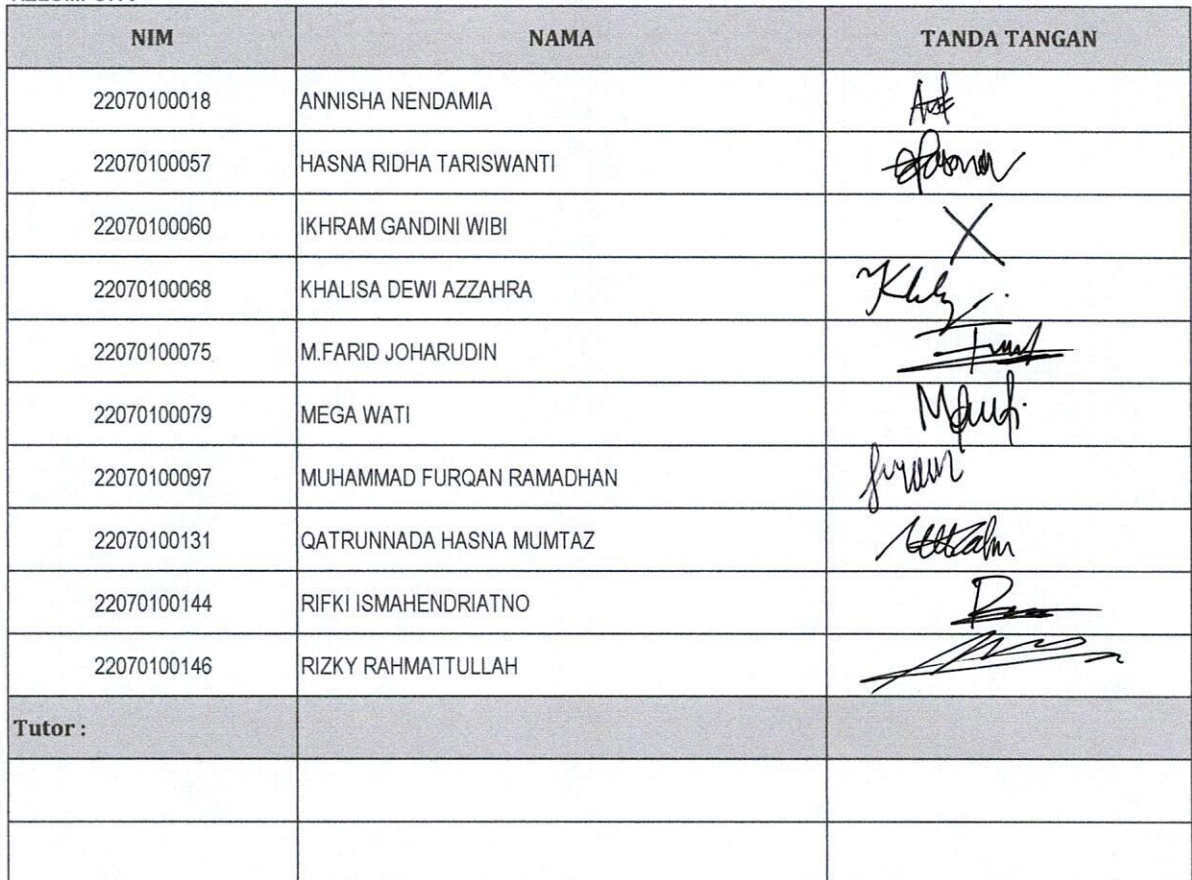 NIM NAMA TANDA TANGAN
22070100018 ANNISHA NENDAMIA
22070100057 HASNA RIDHA TARISWANTI
22070100060 IKHRAM GANDINI WIBI X
22070100068 KHALISA DEWI AZZAHRA
22070100075 M.FARID JOHARUDIN
22070100079 MEGA WATI
22070100097 MUHAMMAD FURQAN RAMADHAN
22070100131 QATRUNNADA HASNA MUMTAZ
22070100144 RIFKI ISMAHENDRIATNO
22070100146 RIZKY RAHMATTULLAH
Tutor :